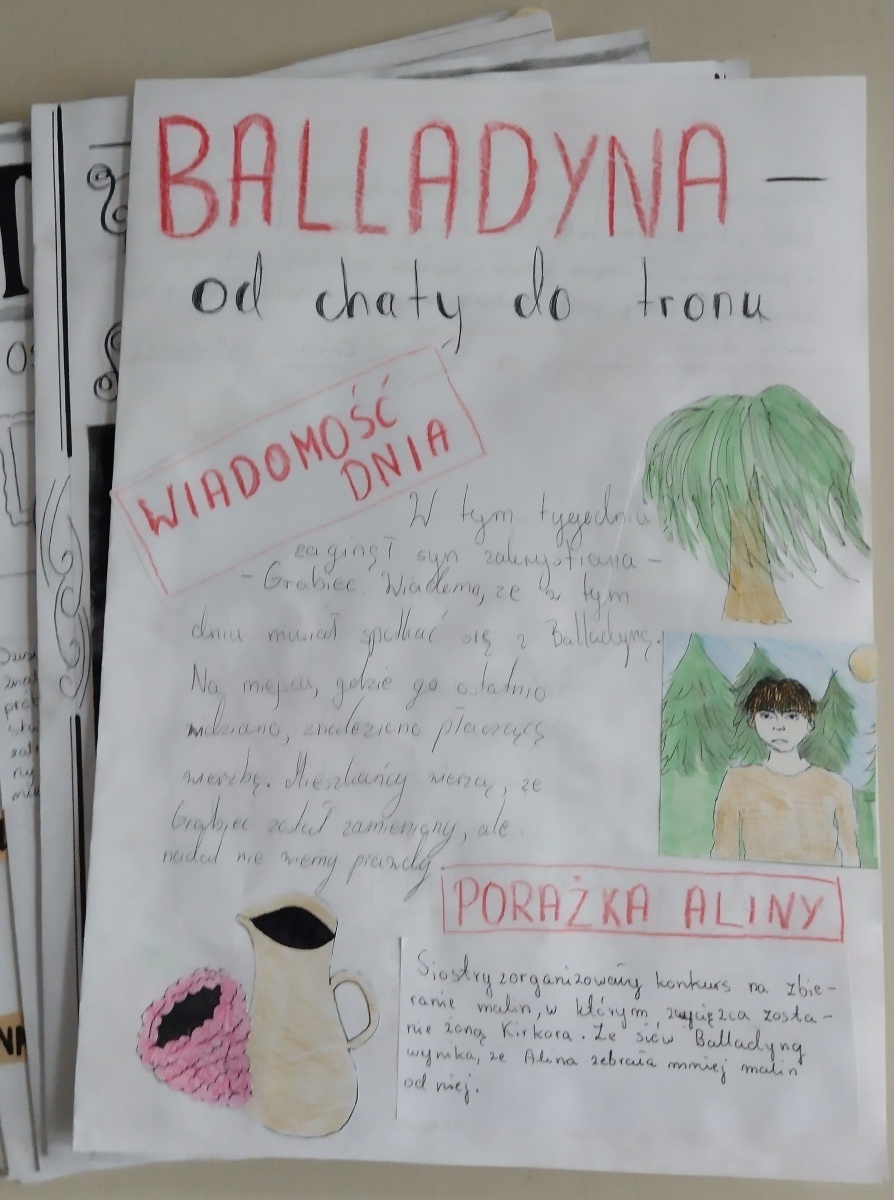 BALLADYNA —
od chaty do tronu
WIADOMOŚĆ
DNIA
W tym tygodniu
zaginął syn zakrystiana –
– Grabiec. Wiadomo, że w tym
dniu musiał spotkać się z Balladyną.
Na miejscu, gdzie go ostatnio
widziano, znaleziono płaczącą
wierzbę. Mieszkańcy wierzą, że
Grabiec został zamieniony, ale
nadal nie wiemy prawdy
PORAŻKA ALINY
Siostry zorganizowały konkurs na zbie-
ranie malin, w którym zwycięzca zosta-
nie żoną Kirkora. Ze słów Balladyny
wynika, że Alina zebrała mniej malin
od niej.